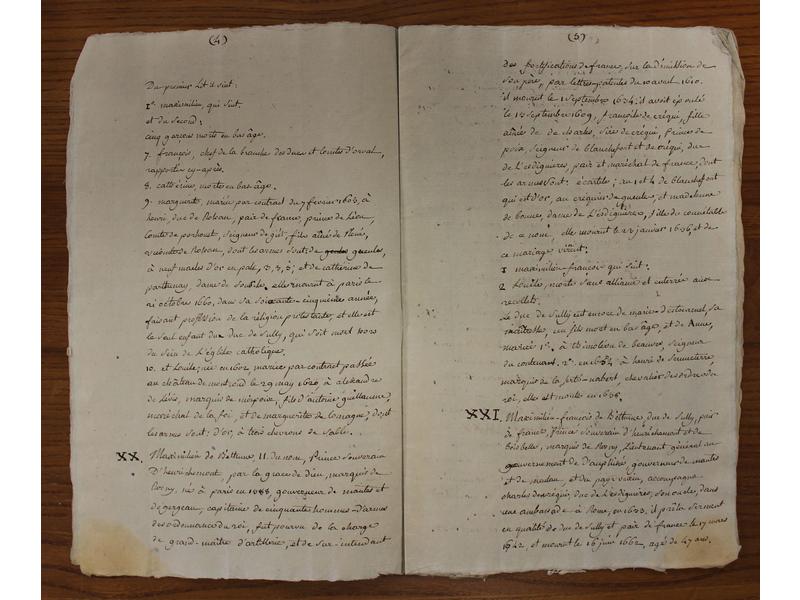 (4)
Du premier Lit il vint:
1°. maximilien, qui suit.
et du second;
cinq garçons morts en bas âge.
7. françois, chef de la branche des ducs et Comtes d'orval,
rapportée cy-après.
8. catherine, morte en bas âge.
9. marguerite, mariée par contract du 7 fevrier 1605, à
henri, duc de Rohan, pair de france, prince de Léon,
Comte de porhoet, seigneur de fils aîné de René,
vicomte de Rohan, dont les armes sont: de gueules,
à neuf macles d'or en pale, 3, 3, 3; et de catherine de
parthenay, dame de Soubise, elle mourut à paris le
21 octobre 1660, dans sa soixante-cinquième année,
faisant profession de la religion protestante, et elle est
le seul enfant du duc de Sully, qui soit mort hors
du sein de L'église catholique.
10. et Louise; née en 1602, mariée par contract passé
au château de le 29 may 1620, à alexandre
de Lévis, marquis de mirpoix, fils d'antoine guillaume,
maréchal de la foi, et de marguerite de Lomagne, dont
les armes sont: d'or, à trois chevrons de sable.
XX. Maximilien de Bethune II. du nom, Prince Souverain
D'henrichemont par la grace de dieu, marquis de
Rosny, né à paris en 1588, gouverneur de mantes et
de gergeau, capitaine de cinquante hommes-D'armes
des ordonnances du roi, fut pourvu de la charge
de grand-maître d'artillerie, et de sur-intendant
(5)
des fortifications de france, sur la démission de
son père, par lettres-patentes du 10 avril 1610.
il mourut le 1 septembre 1634; il avoit épousé
le 13 septembre 1609, françoise de créqui, fille
aînée de de charles, sire de créqui, Prince de
poix, seigneur de blanchefort et de créqui, duc
de L'esdiguieres, pair et maréchal de france, dont
les armes sont: écartelé; au 1 et 4 de blanchefort
qui est d'or, au créquier de gueule, et madeleine
de bonnes, dame de L'esdiguieres, fille du connétable
de ce nom, elle mourut le 23 janvier 1656, et de
ce mariage vinrent:
1 maximilien-françois qui suit.
2 Louise, morte sans alliance et enterrée aux
recollets.
Le duc de Sully eut encore de marie d'estournel, sa
maîtresse, un fils mort en bas âge, et de Anne,
mariée 1°. à thimoléon de beauves, seigneur
du contenant. 2°. en 1654 à henri de senneterre,
marquis de la ferté-nabert, chevalier des ordres du
roi, elle est morte en
XXI. Maximilien-françois de Béthune, duc de Sully, pair
de france, Prince Souverain d'henrichemont et de
boisbelle, marquis de Rosny, Lieutenant général au
gouvernement de Dauphiné, gouverneur de mantes
et de meulan, et du pays vexin, accompagna
charles de crequi, duc de L'esdiguieres, son oncle, dans
une ambassade à Rome, en 1633. il prêta serment
en qualité de duc de Sully et pair de france le 17 mars
1642, et mourut le 16 juin 1662, agé de 47 ans.